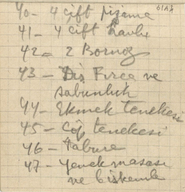 40- 4 çift pijama
41- 4 çift havlu
42= 2 Bornoz
43- Diş Fırça ve
sabunluk
44- Ekmek tenekesi
45- Çöp tenekesi
46- Tabure
47- Yemek masası
ve iskemle